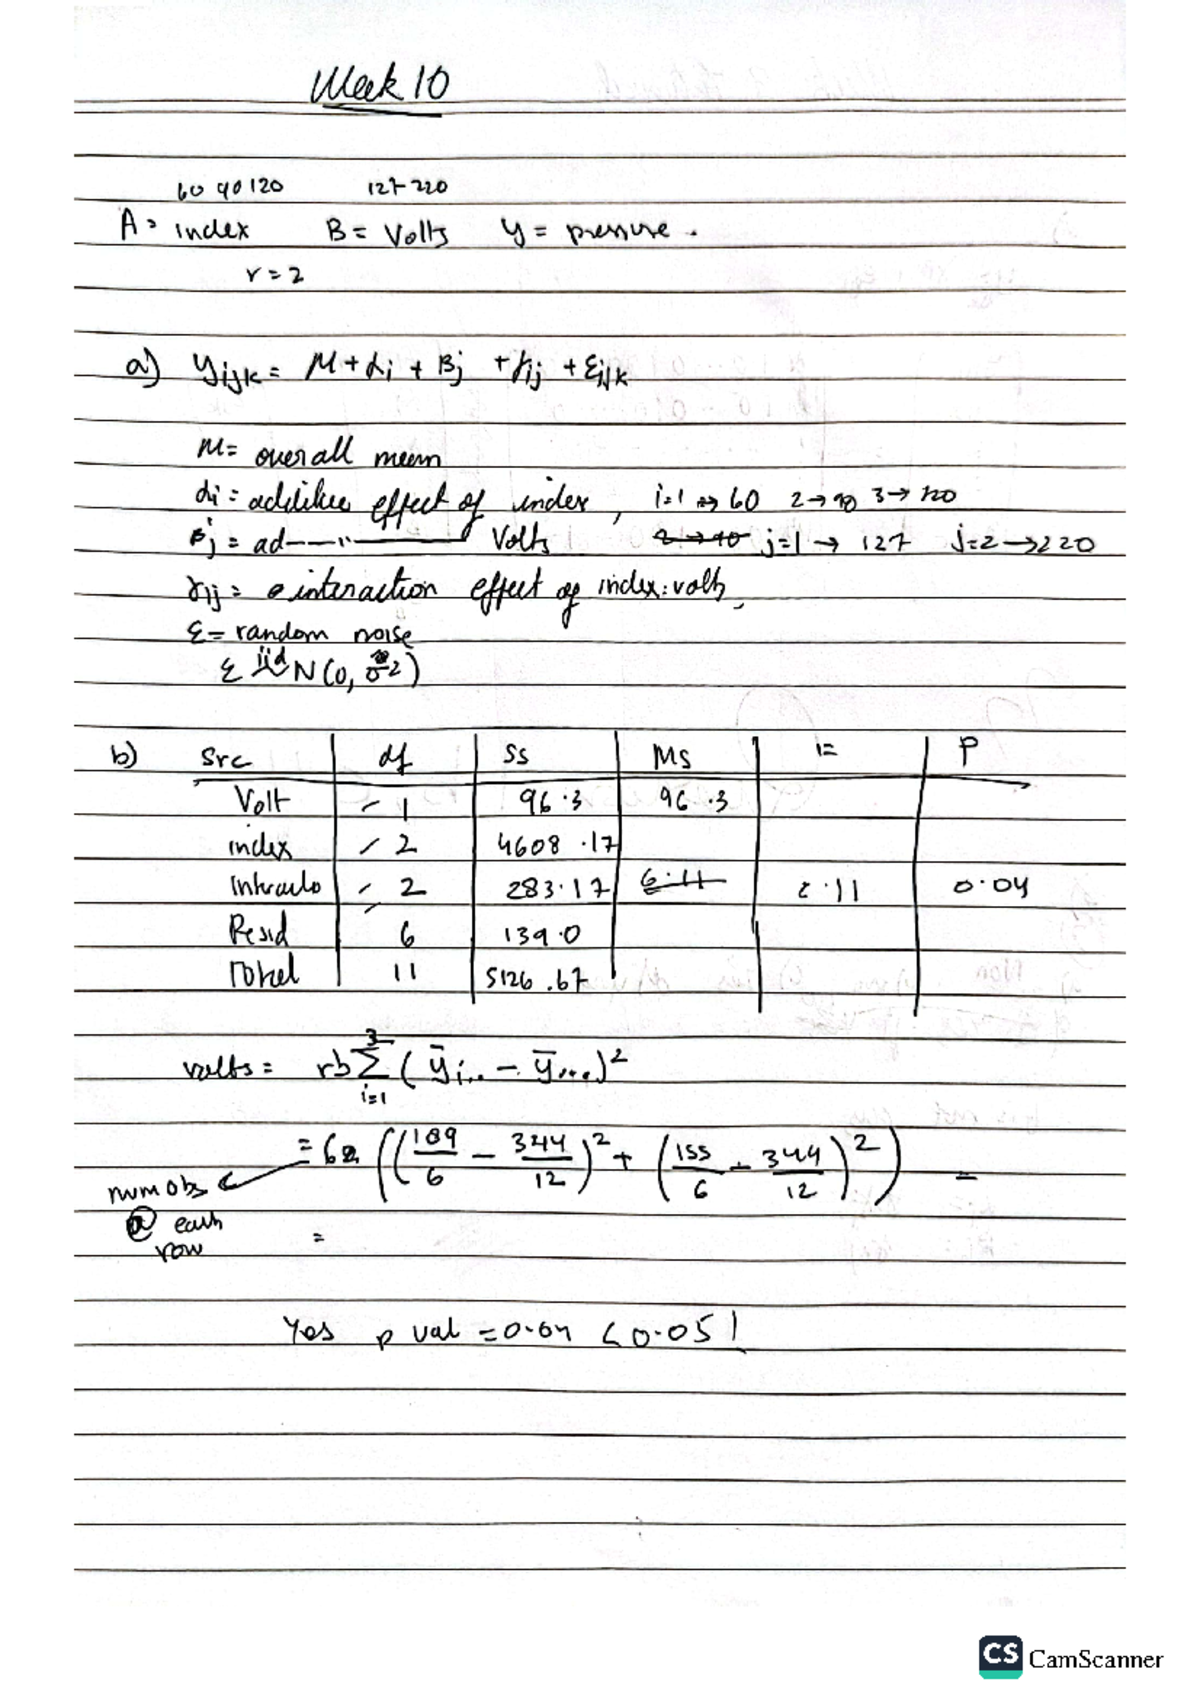 Week 10
60 90 120 127 220
A = index B = Volts y = pressure.
r = 2
a) yijk = M + αi + Bj + γij + εijk
M = overall mean
αi = additive effect of index, i=1 → 60 2→90 3→120
Bj = ad---"--- Volts 2→90 j=1 → 127 j=2→220
γij = interaction effect of index:volts,
ε = random noise
ε iid~ N(0, σ2)
b) Src df SS MS F P
Volt 1 96.3 96.3
index 2 4608.17
2 283.17 6.11 6.11 0.04
Resid 6 139.0
Total 11 5126.67
volts = rb 3Σi=1 (ȳi.. - ȳ...)2
= 6 ((189/6 - 344/12)2 + (155/6 - 344/12)2) =
num obs
@ each
row
=
Yes p val = 0.04 < 0.05!
CS CamScanner